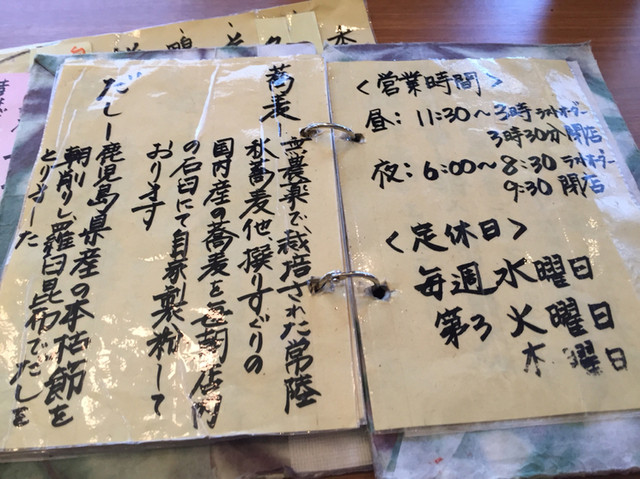 蕎麦ー無農薬で栽培された常陸
秋蕎麦他撰りすぐりの
国内産の蕎麦を当店
の石臼にて自家製粉して
おります
だしー鹿児島県産の本枯節を
朝削り、羅臼昆布でだしを
とりました
＜営業時間＞
昼：11:30〜3時ラストオーダー
3時30分閉店
夜：6:00〜8:30ラストオーダー
9:30閉店
＜定休日＞
毎週水曜日
第3火曜日
木曜日